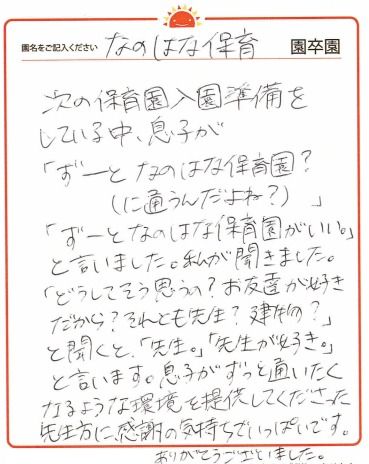 園名をご記入ください なのはな保育 園卒園
次の保育園入園準備を
している中、息子が
「ずーとなのはな保育園?
(に通うんだよね?) 」
「ずーとなのはな保育園がいい。」
と言いました。私が聞きました。
「どうしてそう思うの?お友達が好き
だから?それとも先生?建物?」
と聞くと、「先生。」「先生が好き。」
と言います。息子がずっと通いたく
なるような環境を提供してくださった
先生方に感謝の気持ちでいっぱいです。
ありがとうございました。